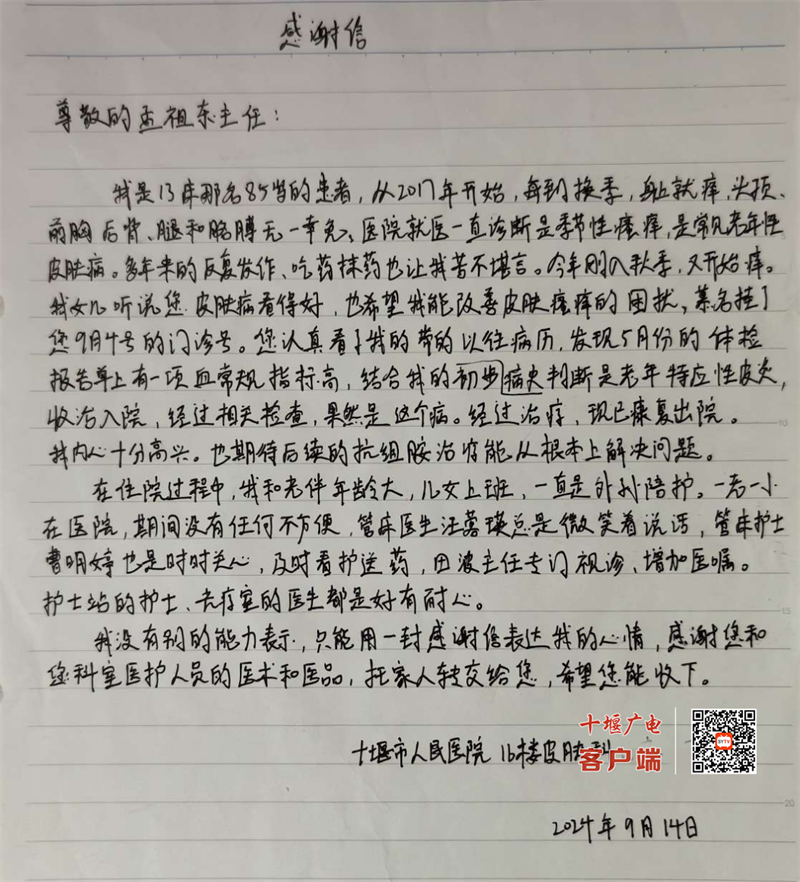 感谢信
尊敬的孟祖东主任：
我是13床那名85岁的患者，从2017年开始，每到换季，身上就痒，头顶、
前胸后背、腿和胳膊无一幸免、医院就医一直诊断是季节性瘙痒，是常见老年性
皮肤病。多年来的反复发作、吃药抹药也让我苦不堪言。今年刚入秋季，又开始痒。
我女儿听说您皮肤病看得好，也希望我能改善皮肤瘙痒的困扰，慕名挂了
您9月4号的门诊号。您认真看了我的带的以往病历，发现5月份的体检
报告单上有一项血常规指标高，结合我的初步病史判断是老年特应性皮炎，
收治入院，经过相关检查，果然是这个病。经过治疗，现已康复出院。
我内心十分高兴。也期待后续的抗组胺治疗能从根本上解决问题。
在住院过程中，我和老伴年龄大，儿女上班，一直是外孙陪护。一老一小
在医院，期间没有任何不方便，管床医生汪蕗瑛总是微笑着说话，管床护士
曹明婷也是时时关心，及时看护送药，田波主任专门视诊、增加医嘱。
护士站的护士、去疗室的医生都是好有耐心。
我没有别的能力表示，只能用一封感谢信表达我的心情，感谢您和
您科室医护人员的医术和医品，托家人转交给您，希望您能收下。
十堰市人民医院 16楼皮肤科
2024年9月14日
十堰广电
客户端